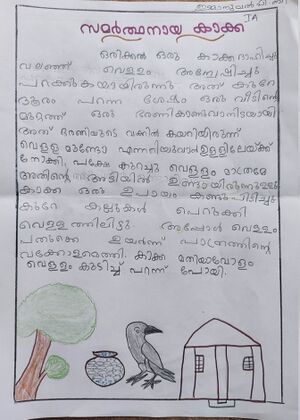 ഇമ്മാനുവൽ പി. ബി
I A
സമർത്ഥനായ കാക്ക
ഒരിക്കൽ ഒരു കാക്ക ദാഹിച്ചു
വലഞ്ഞ് വെള്ളം അന്വേഷിച്ചു
പറക്കുകയായിരുന്നു. അത് കുറേ
ദൂരം പറന്ന ശേഷം ഒരു വീടിന്റെ
മുറ്റത്ത് ഒരു ഭരണികാണുവാനിടയായി
അത് ഭരണിയുടെ വക്കിൽ കയറിയിരുന്ന്
വെള്ളമുണ്ടോ എന്നറിയുവാൻ ഉള്ളിലേയ്ക്ക്
നോക്കി, പക്ഷേ കുറച്ചു വെള്ളം മാത്രമേ
അതിന്റെ അടിയിൽ ഉണ്ടായിരുന്നുള്ളൂ
കാക്ക ഒരു ഉപായം കണ്ടുപിടിച്ചു
കുറേ കല്ലുകൾ പെറുക്കി
വെള്ളത്തിലിട്ടു. അപ്പോൾ വെള്ളം
പതുക്കെ ഉയർന്ന് പാത്രത്തിന്റെ
വക്കോളമെത്തി. കാക്ക മതിയാവോളം
വെള്ളം കുടിച്ച് പറന്ന് പോയി.